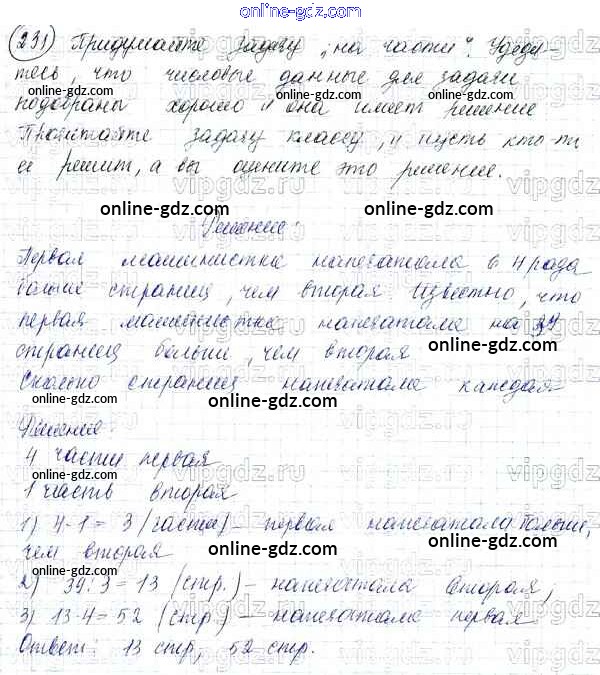 online-gdz.com
231) Придумайте задачу „на части". Убеди-
тесь, что числовые данные для задачи
подобраны хорошо и она имеет решение
Прочитайте задачу классу, и пусть кто-то
её решит, а вы оцените это решение.
online-gdz.com online-gdz.com
Решение:
Первая машинистка напечатала в 4 раза
больше страниц, чем вторая. Известно, что
первая машинистка напечатала на 39
страниц больше, чем вторая
online-gdz.com
Сколько страниц напечатала каждая
online-gdz.com online-gdz.com
Решение:
4 части первая
online-gdz.com online-gdz.com
1 часть вторая
1) 4-1= 3 (части) – первая напечатала больше,
чем вторая
online-gdz.com online-gdz.com
2) 39:3=13 (стр.) – напечатала вторая,
3) 13·4=52 (стр.) – напечатала первая
Ответ: 13 стр, 52 стр.
online-gdz.com online-gdz.com